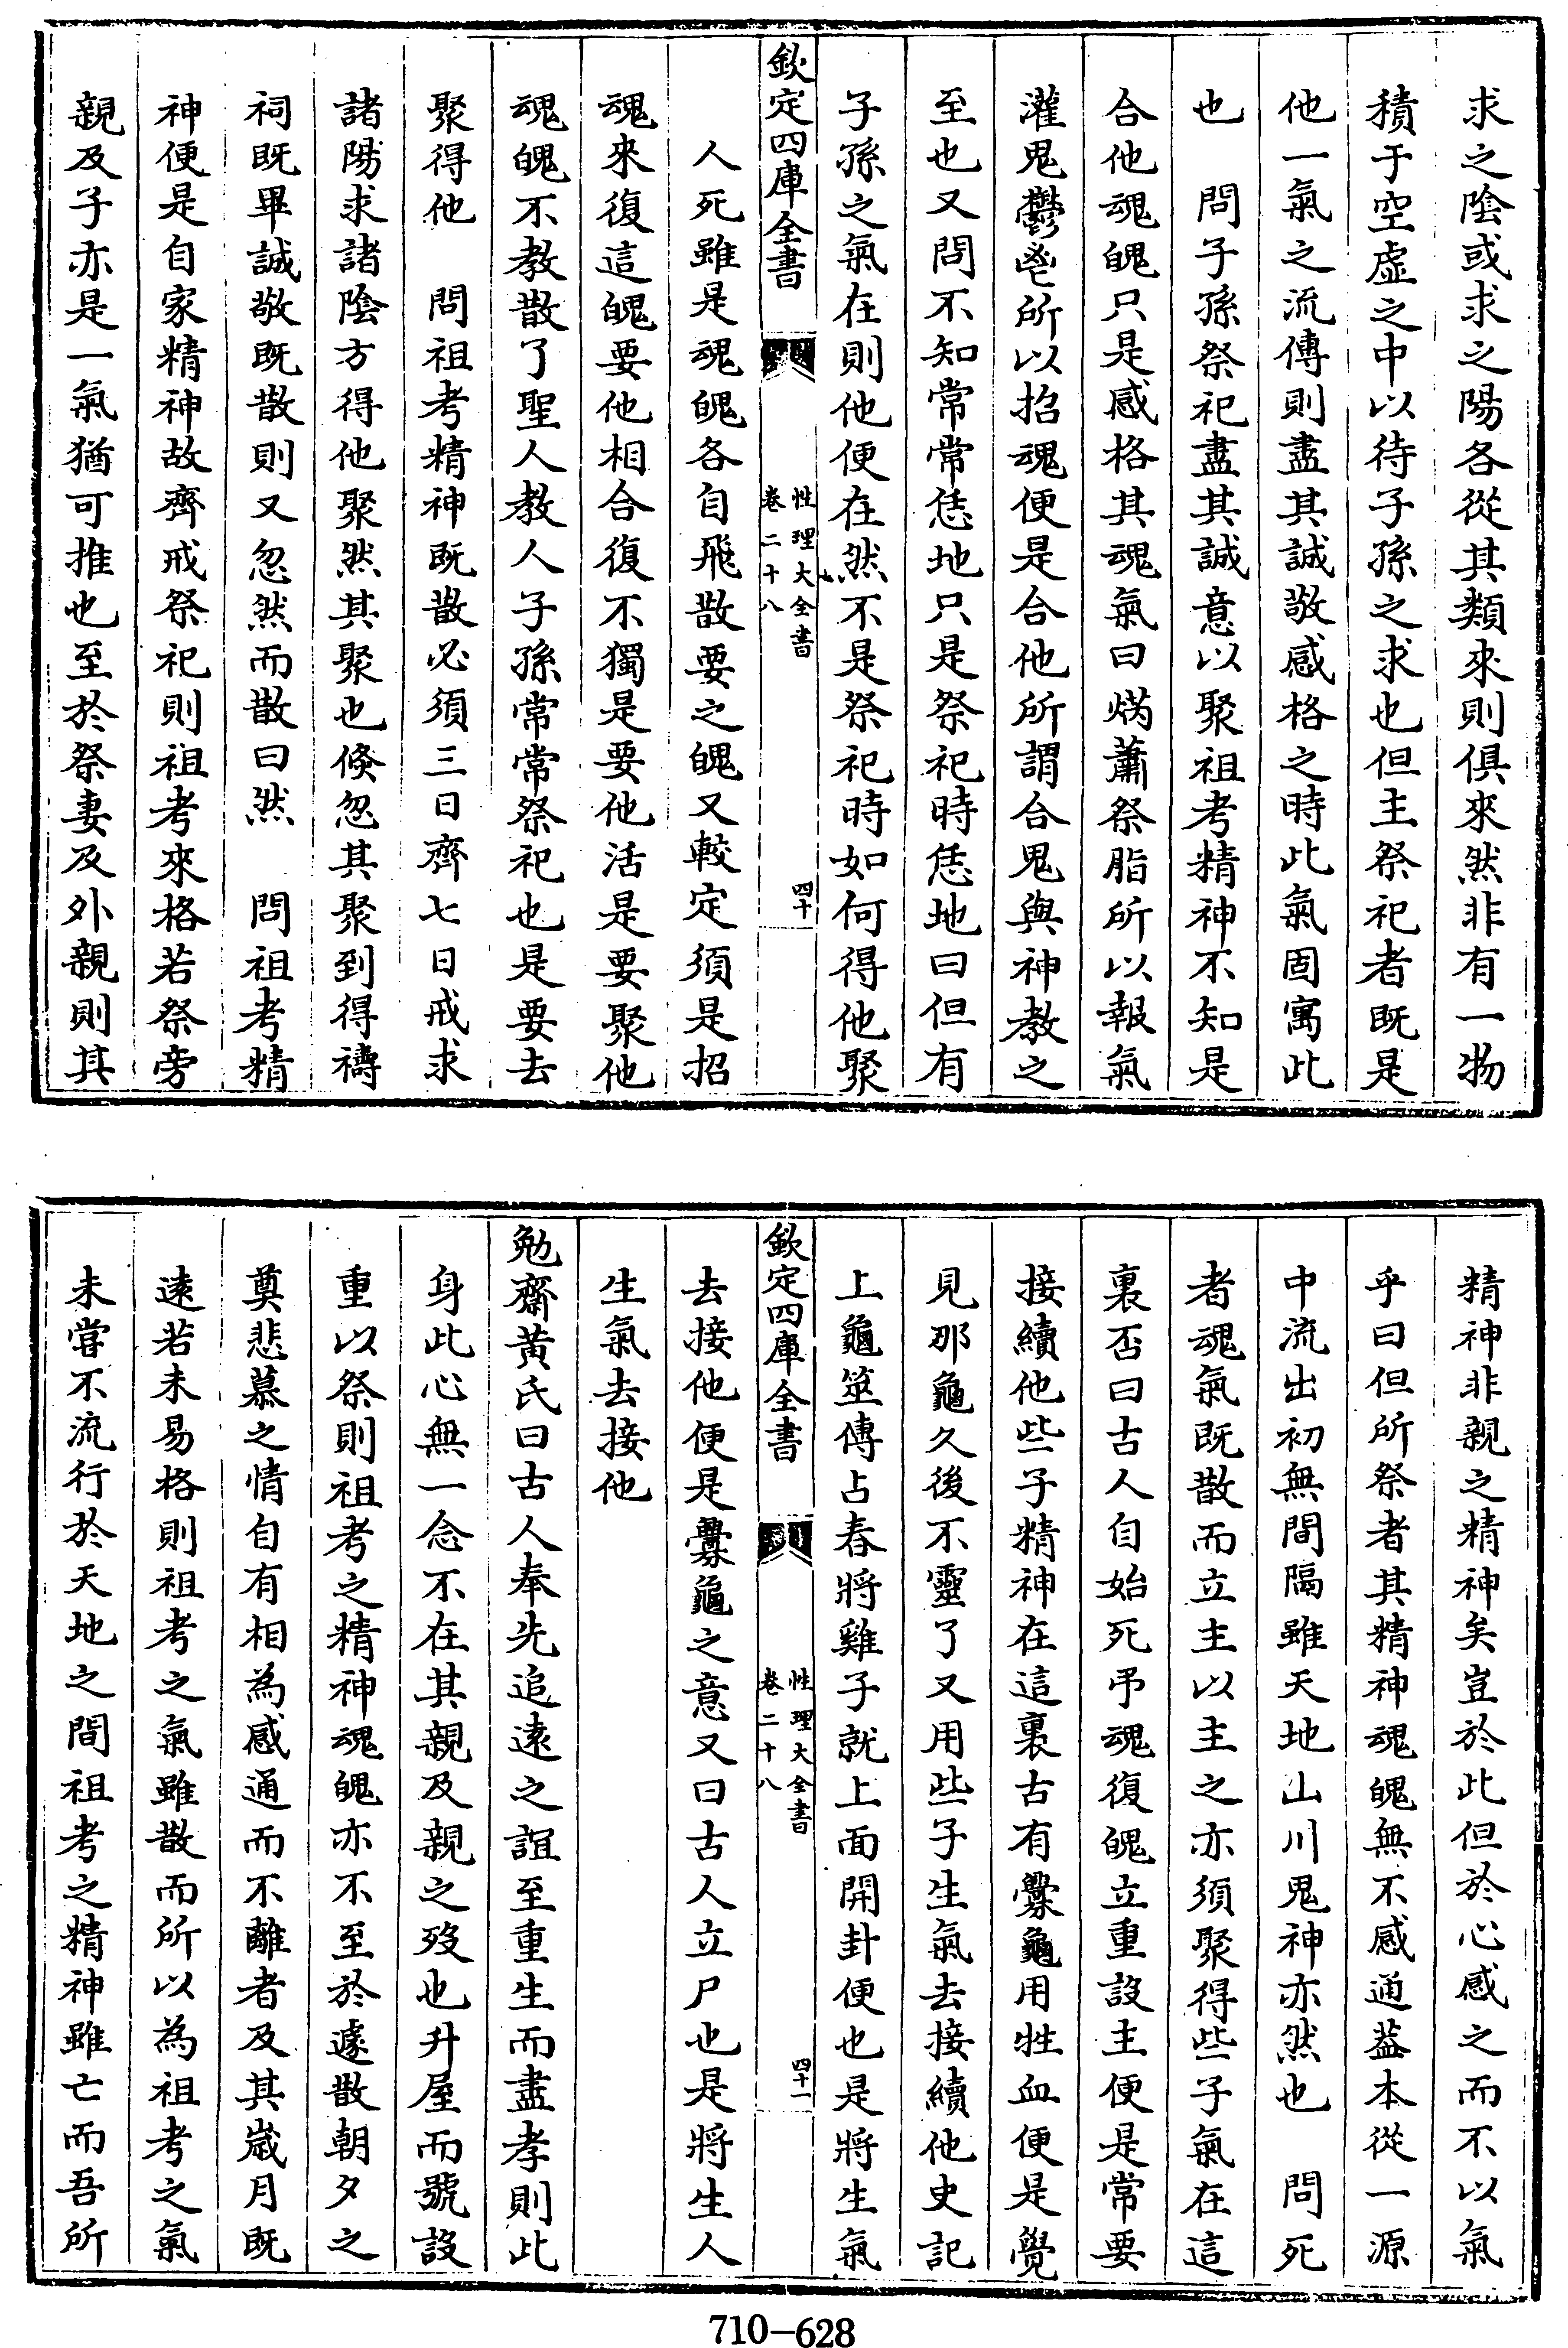 求之陰或求之陽各從其類來則俱來然非有一物
積于空虛之中以待子孫之求也但主祭祀者既是
他一氣之流傳則盡其誠敬感格之時此氣固寓此
也　問子孫祭祀盡其誠意以聚祖考精神不知是
合他魂魄只是感格其魂氣曰焫蕭祭脂所以報氣
灌鬯鬱鬯所以招魂便是合他所謂合鬼與神教之
至也又問不知常常恁地只是祭祀時恁地曰但有
子孫之氣在則他便在然不是祭祀時如何得他聚
欽定四庫全書
性理大全書
卷二十八
四十
人死雖是魂魄各自飛散要之魄又較定須是招
魂來復這魄要他相合復不獨是要他活是要聚他
魂魄不教散了聖人教人子孫常常祭祀也是要去
聚得他　問祖考精神既散必須三日齊七日戒求
諸陽求諸陰方得他聚然其聚也倏忽其聚到得禱
祠既畢誠敬既散則又忽然而散曰然　問祖考精
神便是自家精神故齊戒祭祀則祖考來格若祭旁
親及子亦是一氣猶可推也至於祭妻及外親則其
精神非親之精神矣豈於此但於心感之而不以氣
乎曰但所祭者其精神魂魄無不感通葢本從一源
中流出初無間隔雖天地山川鬼神亦然也　問死
者魂氣既散而立主以主之亦須聚得些子氣在這
裏否曰古人自始死弔魂復魄立重設主便是常要
接續他些子精神在這裏古有釁龜用牲血便是覺
見那龜久後不靈了又用些子生氣去接續他史記
上龜筮傳占春將雞子就上面開卦便也是將生氣
欽定四庫全書
性理大全書
卷二十八
四十一
去接他便是釁龜之意又曰古人立尸也是將生人
生氣去接他
勉齋黃氏曰古人奉先追遠之誼至重生而盡孝則此
身此心無一念不在其親及親之歿也升屋而號設
重以祭則祖考之精神魂魄亦不至於遽散朝夕之
奠悲慕之情自有相為感通而不離者及其歲月既
遠若未易格則祖考之氣雖散而所以為祖考之氣
未嘗不流行於天地之間祖考之精神雖亡而吾所
710-628